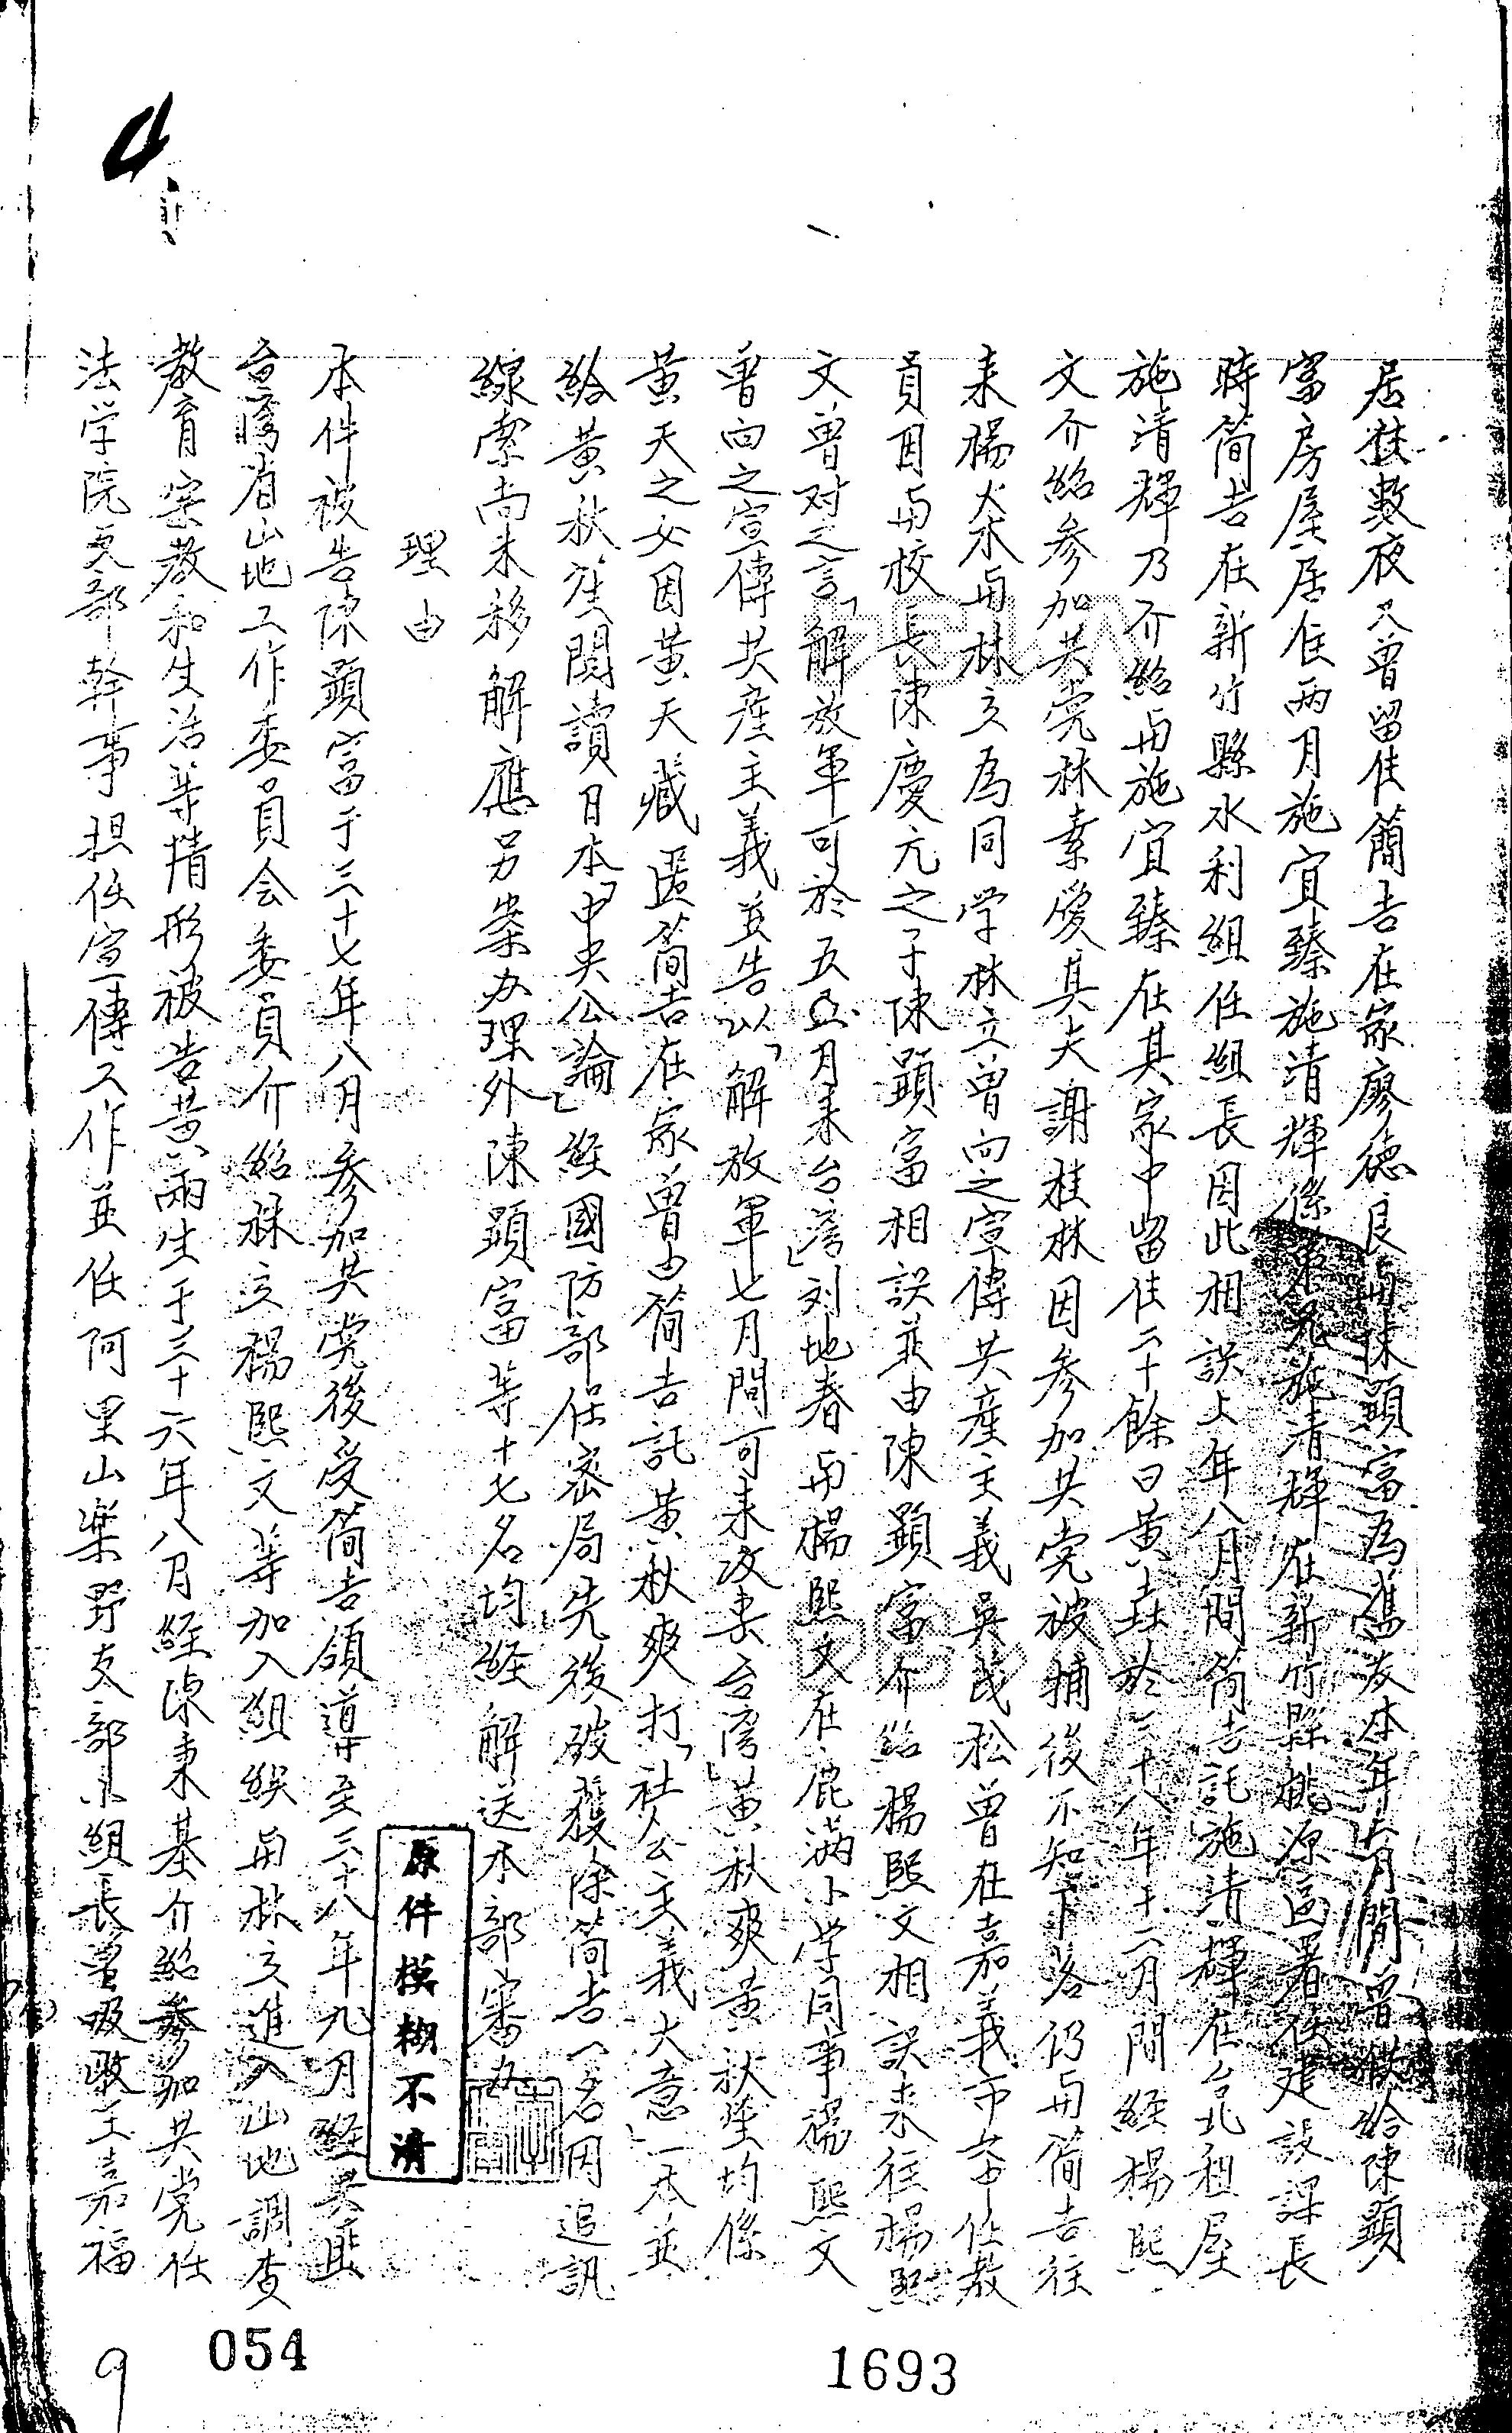 居住数夜又曾留住簡吉在家廖德良与陳顯富為舊友本年 月間曾供給陳顯
富房屋居住兩月施宜臻施清輝係 兄施清輝在新竹縣桃源區署任建設課長
時简吉在新竹縣水利組任組長因此相識上年八月間简吉託施清輝在台北租屋
施清輝乃介紹与施宜臻在其家中留住二十餘日黃垚於三十八年十二月間經楊熙
文介紹參加共党林素愛其夫謝桂林因參加共党被捕後不知下落仍与简吉往
来楊火木与林立為同学林立曾向之宣傳共産主義吳茂松曾在嘉義市 任教
員因与校長陳慶元之子陳顯富相識並由陳顯富介紹楊熙文相識来往楊熙
文曾对之言「解放軍可於五六月来台湾」刘地春与楊熙文在鹿满小学同事楊熙文
曾向之宣傳共産主義並告以「解放軍七月間可来攻击台湾」黃秋爽黃秋笙均係
黃天之女因黃天藏匿简吉在家曾由简吉託黃秋爽打「社会主義大意」一本並
給黃秋笙閱讀日本「中央公論」經國防部保密局先後破獲除简吉一名因追訊
線索尚未移解應另案办理外陳顯富等十七名均經解送本部審办
理由
本件被告陳顯富于三十七年八月參加共党後受简吉領導至三十八年九月經共匪
台湾省山地工作委員会委員介紹林立楊熙文等加入組織与林立進入山地調查
教育宗教和生活等情形被告黃雨生于三十六年八月經陳秉基介紹參加共党任
法学院支部幹事担任宣傳工作並任阿里山樂野支部小組長 吸收王嘉福
原件模糊不清
054
1693
9